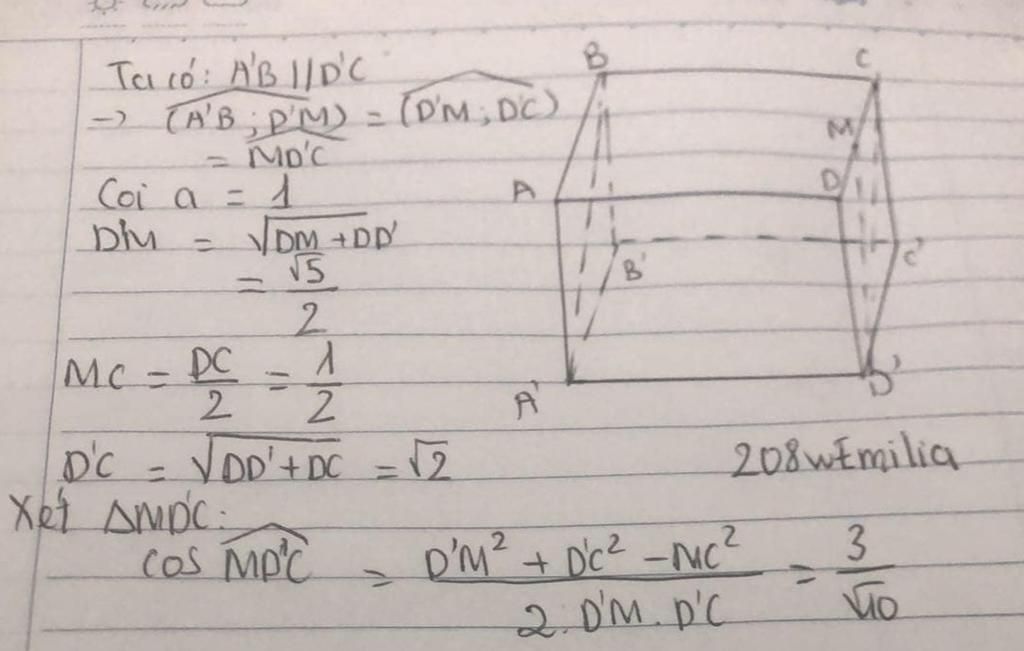 Ta có: A'B // D'C
→ (A'B ; D'M) = (D'M ; D'C)
= MD'C
Coi a = 1
D'M = √DM + DD'
= √5/2
MC = DC/2 = 1/2
D'C = √DD' + DC = √2
Xét ΔMD'C:
cos MD'C = D'M² + D'C² - MC² / 2.D'M.D'C = 3/√10
B C
M
A D
B' C'
A' D'
208wEmilia